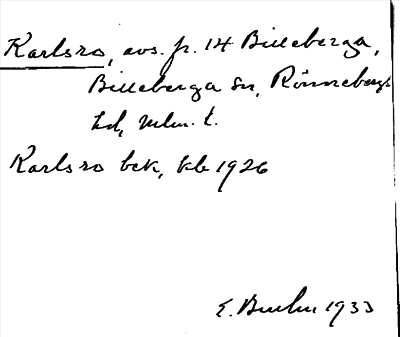 Karlsro, avs. fr. 14 Billeberga,
Billeberga sn, Rönnebergs
hd, Mlm. l.
Karlsro bek, kb 1926
E. 1933